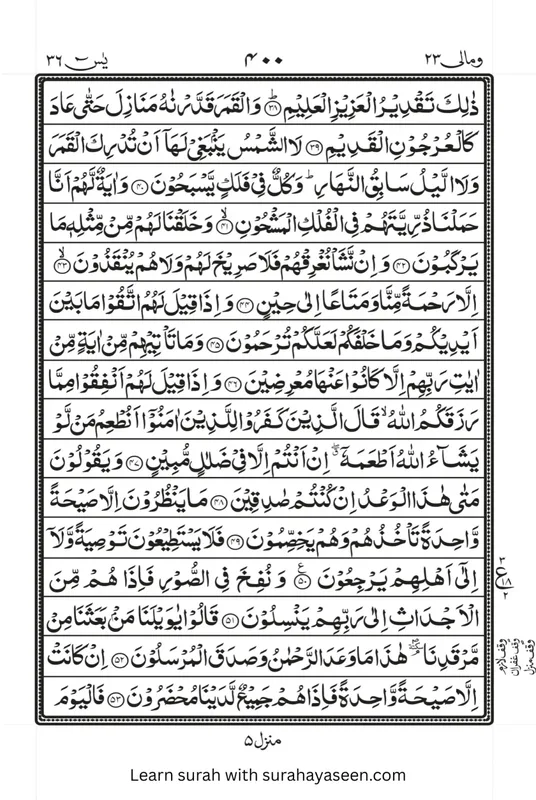 ومالی ۲۳ ۴۰۰ یٰسٓ ۳۶
ذٰلِكَ تَقْدِيْرُ الْعَزِيْزِ الْعَلِيْمِ ۳۸ؕ وَالْقَمَرَ قَدَّرْنٰهُ مَنَازِلَ حَتّٰى عَادَ
كَالْعُرْجُوْنِ الْقَدِيْمِ ۳۹ لَا الشَّمْسُ يَنْۢبَغِىْ لَهَاۤ اَنْ تُدْرِكَ الْقَمَرَ
وَلَا الَّيْلُ سَابِقُ النَّهَارِؕ وَكُلٌّ فِىْ فَلَكٍ يَّسْبَحُوْنَ ۴۰ وَاٰيَةٌ لَّهُمْ اَنَّا
حَمَلْنَا ذُرِّيَّتَهُمْ فِى الْفُلْكِ الْمَشْحُوْنِ ۴۱ۙ وَخَلَقْنَا لَهُمْ مِّنْ مِّثْلِهٖ مَا
يَرْكَبُوْنَ ۴۲ وَاِنْ نَّشَاْ نُغْرِقْهُمْ فَلَا صَرِيْخَ لَهُمْ وَلَا هُمْ يُنْقَذُوْنَ ۴۳ۙ
اِلَّا رَحْمَةً مِّنَّا وَمَتَاعًا اِلٰى حِيْنٍ ۴۴ وَاِذَا قِيْلَ لَهُمُ اتَّقُوْا مَا بَيْنَ
اَيْدِيْكُمْ وَمَا خَلْفَكُمْ لَعَلَّكُمْ تُرْحَمُوْنَ ۴۵ وَمَا تَاْتِيْهِمْ مِّنْ اٰيَةٍ مِّنْ
اٰيٰتِ رَبِّهِمْ اِلَّا كَانُوْا عَنْهَا مُعْرِضِيْنَ ۴۶ وَاِذَا قِيْلَ لَهُمْ اَنْفِقُوْا مِمَّا
رَزَقَكُمُ اللّٰهُ ۙ قَالَ الَّذِيْنَ كَفَرُوْا لِلَّذِيْنَ اٰمَنُوْۤا اَنُطْعِمُ مَنْ لَّوْ
يَشَآءُ اللّٰهُ اَطْعَمَهٗۤ ۖ اِنْ اَنْتُمْ اِلَّا فِىْ ضَلٰلٍ مُّبِيْنٍ ۴۷ وَيَقُوْلُوْنَ
مَتٰى هٰذَا الْوَعْدُ اِنْ كُنْتُمْ صٰدِقِيْنَ ۴۸ مَا يَنْظُرُوْنَ اِلَّا صَيْحَةً
وَّاحِدَةً تَاْخُذُهُمْ وَهُمْ يَخِصِّمُوْنَ ۴۹ فَلَا يَسْتَطِيْعُوْنَ تَوْصِيَةً وَّلَاۤ
اِلٰٓى اَهْلِهِمْ يَرْجِعُوْنَ ۵۰ ع وَنُفِخَ فِى الصُّوْرِ فَاِذَا هُمْ مِّنَ
الْاَجْدَاثِ اِلٰى رَبِّهِمْ يَنْسِلُوْنَ ۵۱ قَالُوْا يٰوَيْلَنَا مَنْۢ بَعَثَنَا مِنْ
مَّرْقَدِنَا ۘ هٰذَا مَا وَعَدَ الرَّحْمٰنُ وَصَدَقَ الْمُرْسَلُوْنَ ۵۲ اِنْ كَانَتْ
اِلَّا صَيْحَةً وَّاحِدَةً فَاِذَا هُمْ جَمِيْعٌ لَّدَيْنَا مُحْضَرُوْنَ ۵۳ فَالْيَوْمَ
۲
ع ۱۸
۲
وقف لازم
وقف غفران
وقف منزل
منزل ۵
Learn surah with surahayaseen.com